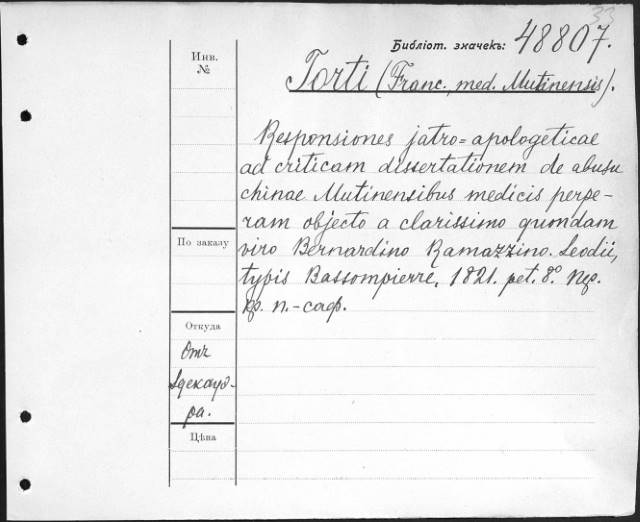 33
Библіот. значекъ: 48807.
Инв.
№
Torti (Franc., med. Mutinensis).
Responsiones jatro=apologeticae
ad criticam dissertationem de abusu
chinae Mutinensibus medicis perpe-
ram objecto a clarissimo quondam
viro Bernardino Ramazzino. Leodii,
typis Bassompierre, 1821. pet. 8.° пер.
кр. п.-саф.
По заказу
Откуда
Отъ
ра.
Цѣна